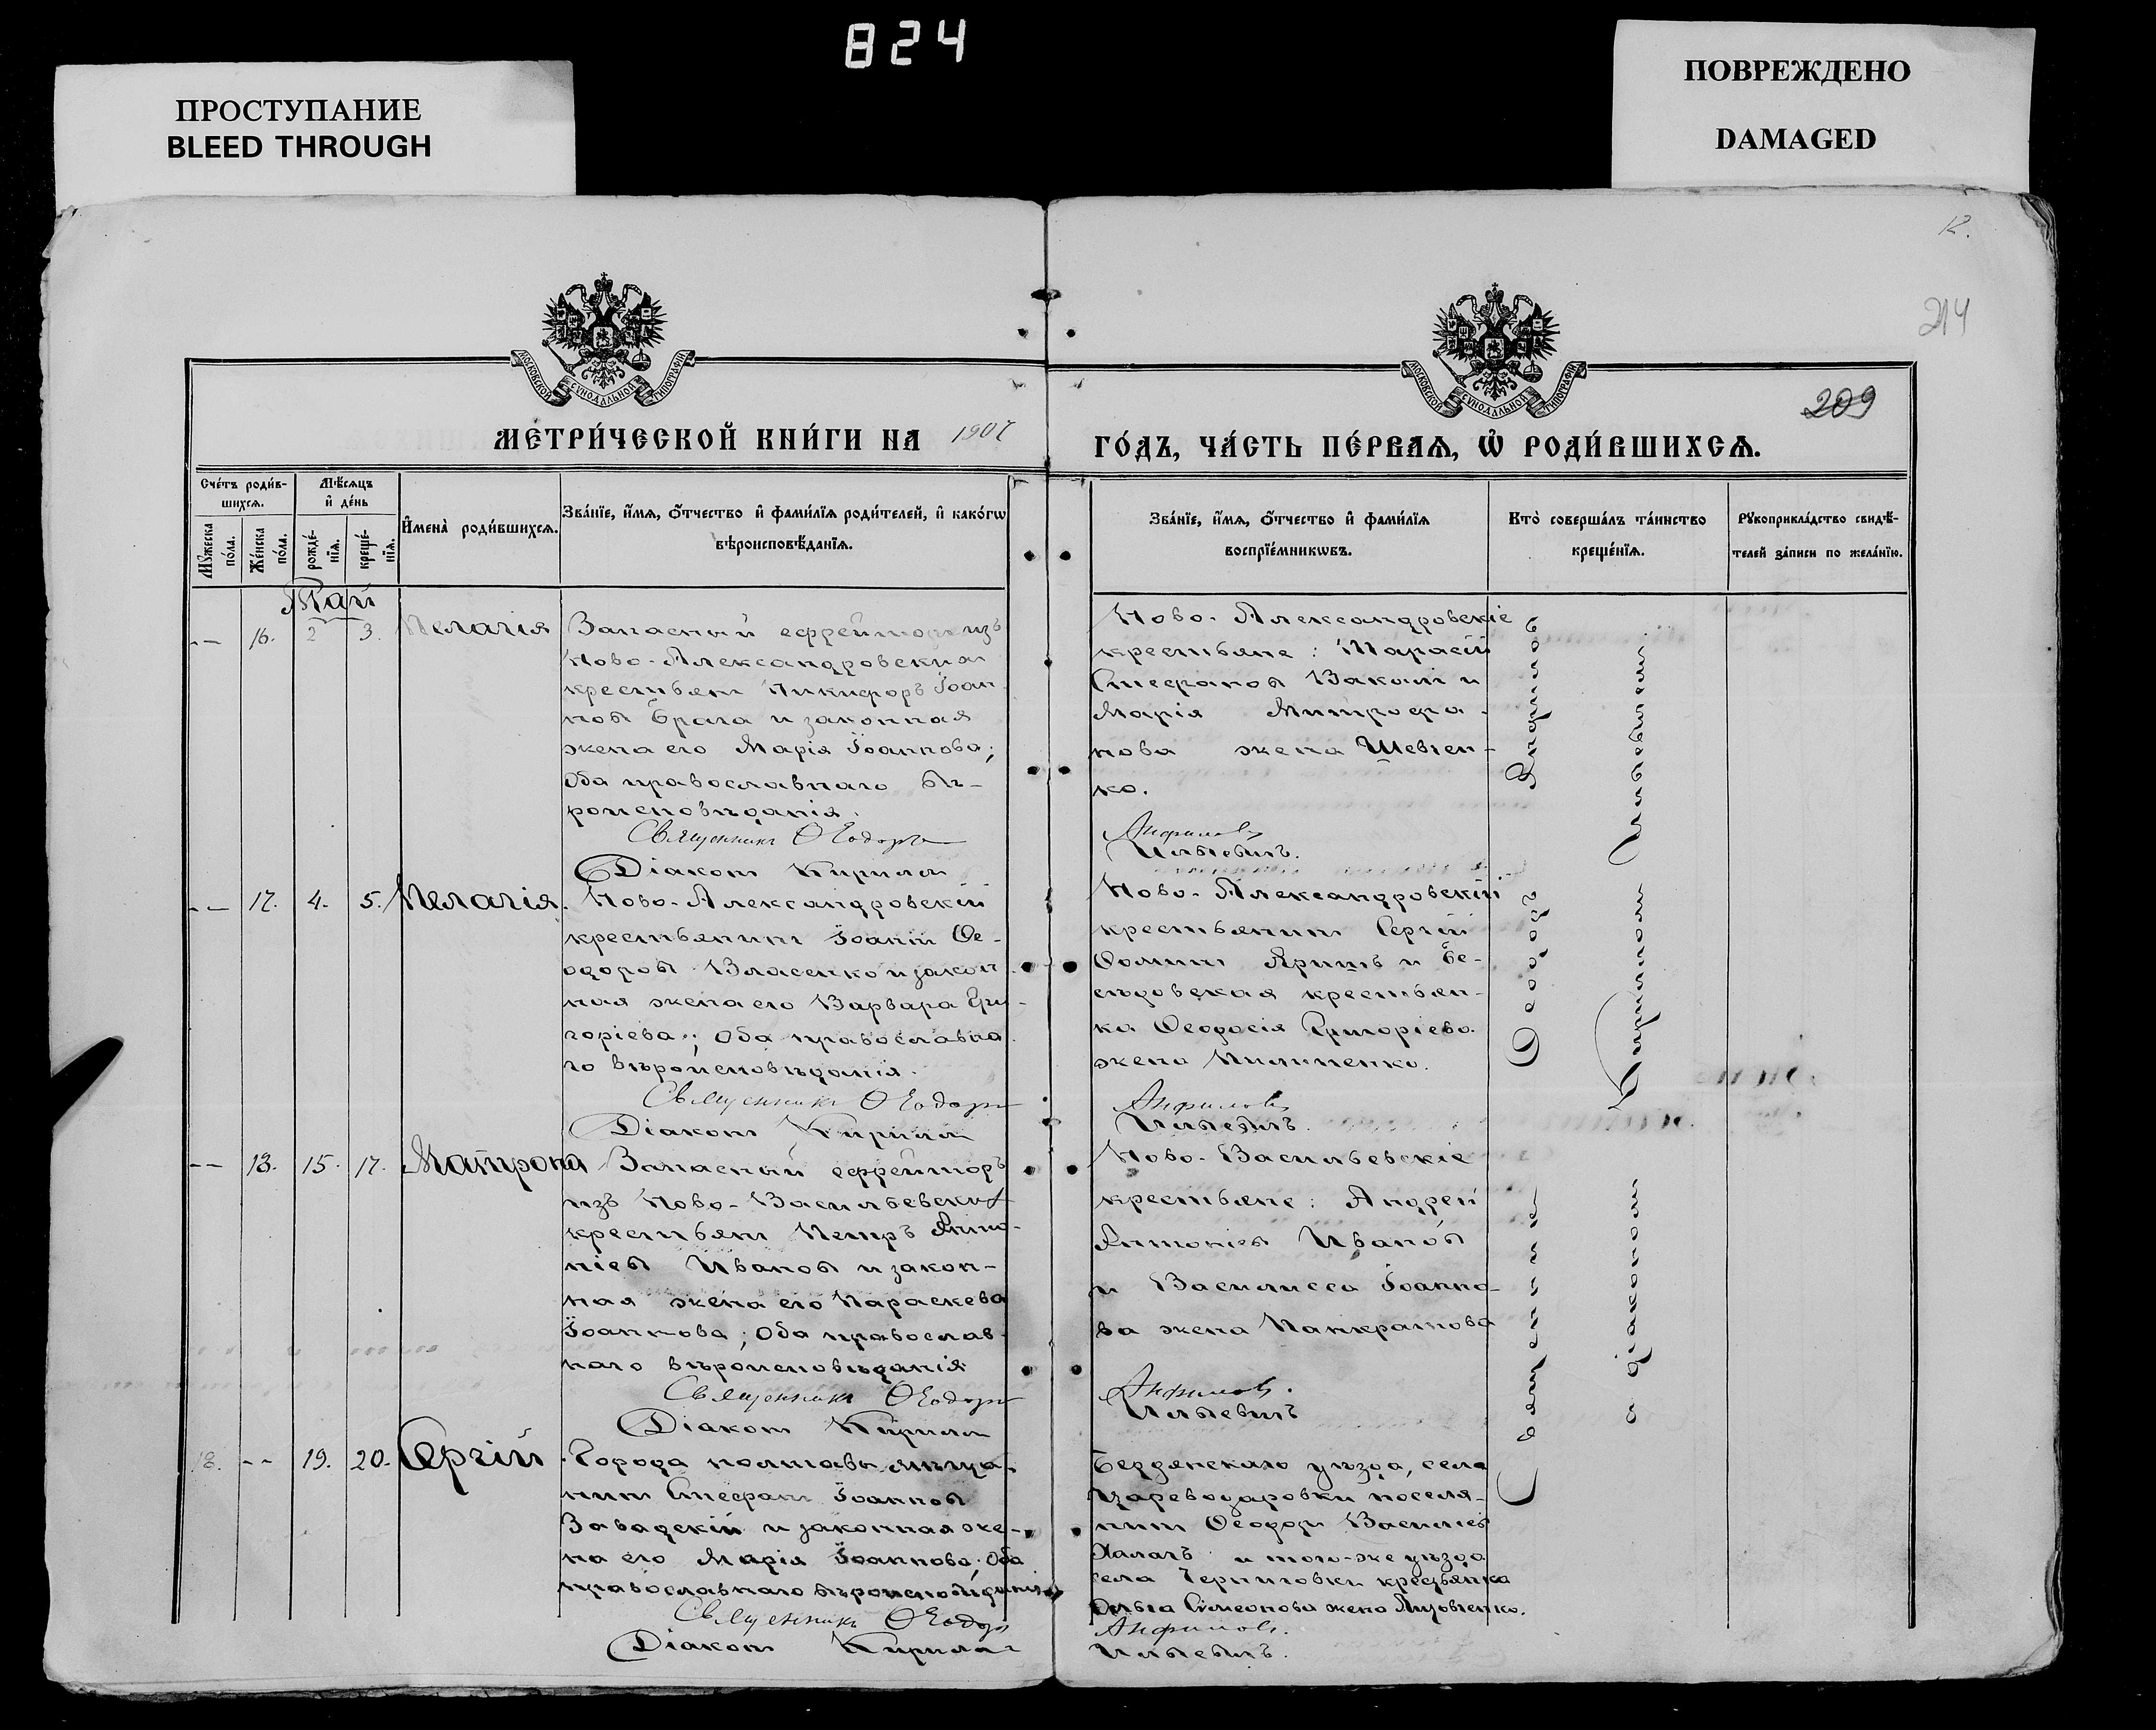 824
ПРОСТУПАНИЕ
BLEED THROUGH
ПОВРЕЖДЕНО
DAMAGED
12.
214
209
МОСКОВСКОЙ СѴНОДАЛЬНОЙ ТИПОГРАФІИ
МОСКОВСКОЙ СѴНОДАЛЬНОЙ ТИПОГРАФІИ
МЕТРИ́ЧЕСКОЙ КНИ́ГИ НА 1907
ГО́ДЪ, ЧА́СТЬ ПЕ́РВАѦ, Ѽ РОДИ́ВШИХСѦ.
Сче́тъ роди́в-
шихсѧ.
Мꙋ́жеска по́ла.
Же́нска по́ла.
Мѣ́сѧцъ
и҆ де́нь
рожде́-
нїѧ.
креще́-
нїѧ.
И҆мена̀ роди́вшихсѧ.
Зва́нїе, и҆́мѧ, ѻ҆́тчество и҆ фами́лїѧ роди́телей, и҆ како́гѡ
вѣроисповѣ́данїѧ.
Зва́нїе, и҆́мѧ, ѻ҆́тчество и҆ фами́лїѧ
воспрїе́мникѡвъ.
Кто̀ соверша́лъ та́инство
креще́нїѧ.
Рꙋкоприкла́дство свидѣ́-
телей за́писи по жела́нїю.
Май
-- 16. 2 3. Пелагія
Запасный ефрейторъ изъ
Ново-Александровскихъ
крестьянъ Никифоръ Іоан
новъ Брага и законная
жена его Марія Іоаннова;
Оба православнаго вѣ-
роисповѣданія.
Священникъ Ѳеодоръ
Діаконъ Кириллъ
Ново-Александровскіе
крестьяне: Тарасій
Стефановъ Вакали и
Марія Митрофа-
нова жена Шевчен-
ко.
Анфиловъ
Ильевичъ.
-- 17. 4. 5. Пелагія.
Ново-Александровскій
крестьянинъ Іоаннъ Ѳе-
одоровъ Власенко и закон
ная жена его Варвара Гри-
горіева; Оба православна
го вѣроисповѣданія.
Священникъ Ѳеодоръ
Діаконъ Кириллъ
Ново-Александровскій
крестьянинъ Сергій
Ѳоминъ Яришъ и Бе-
сѣдовская крестьян-
ка Ѳеодосія Григоріева
жена Пилипенко.
Анфиловъ
Ильевичъ.
-- 18. 15. 17. Матрона
Запасный ефрейторъ
изъ Ново-Васильевскихъ
крестьянъ Петръ Анто-
ніевъ Ивановъ и закон-
ная жена его Параскева
Іоаннова; Оба православ-
наго вѣроисповѣданія
Священникъ Ѳеодоръ
Діаконъ Кириллъ
Ново-Васильевскіе
крестьяне: Андрей
Антоніевъ Ивановъ
и Василисса Іоанно-
ва жена Панкратова
Анфиловъ.
Ильевичъ
18. -- 19. 20. Сергій
Города Полтавы мѣща-
нинъ Стефанъ Іоанновъ
Завадскій и законная же-
на его Марія Іоаннова; Оба
православнаго вѣроисповѣданія
Священникъ Ѳеодоръ
Діаконъ Кириллъ
Бердянскаго уѣзда, села
Цареводаровки поселя-
нинъ Ѳеодоръ Васильевъ
Халачъ и того-же уѣзда
села Черниговки крестьянка
Ольга Симеонова жена
Анфиловъ.
Ильевичъ.
Священникъ Ѳеодоръ Анфиловъ
съ діакономъ Кирилломъ Ильевичемъ.